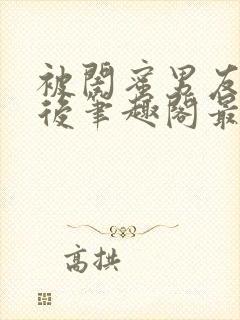 被閤蜜男友
後筆趣閣最
高拱